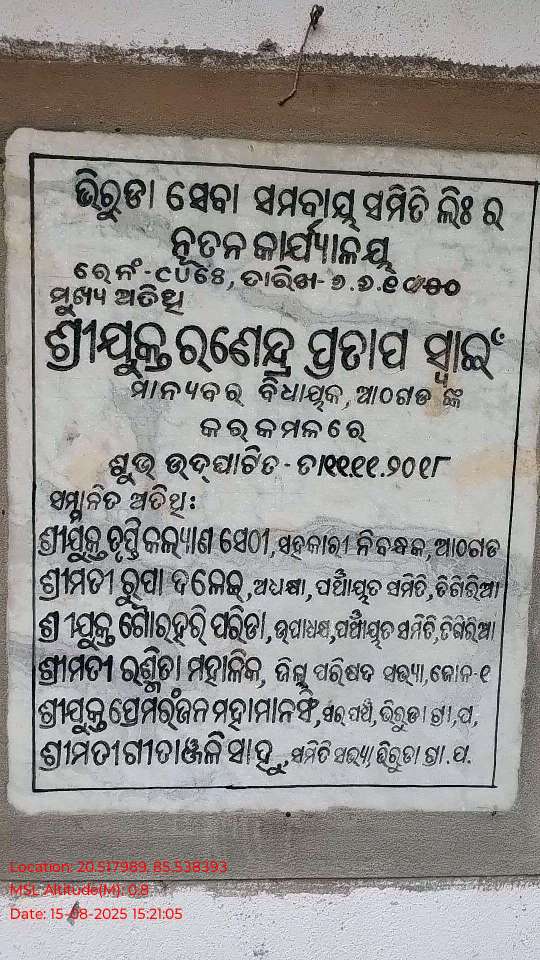 ଭିରୁଡା ସେବା ସମବାୟ ସମିତି ଲିଃ ର
ନୂତନ କାର୍ଯ୍ୟାଳୟ
ରେ ନଂ - ତାରିଖ - ୬.୬.
ମୁଖ୍ୟ ଅତିଥି
ଶ୍ରୀଯୁକ୍ତ ରଣେନ୍ଦ୍ର ପ୍ରତାପ ସ୍ୱାଇଁ
ମାନ୍ୟବର ବିଧାୟକ, ଆଠଗଡ ଙ୍କ
କର କମଳ ରେ
ଶୁଭ ଉଦ୍‌ଘାଟିତ - ତା୧୧.୧୧.୨୦୧୮
ସମ୍ମାନିତ ଅତିଥି :
ଶ୍ରୀଯୁକ୍ତ ତୃପ୍ତି କଲ୍ୟାଣ ସେଠୀ, ସହକାରୀ ନିବନ୍ଧକ, ଆଠଗଡ
ଶ୍ରୀମତୀ ରୁପା ଦଳେଇ, ଅଧକ୍ଷା, ପଞ୍ଚାୟତ ସମିତି, ତିଗିରିଆ
ଶ୍ରୀଯୁକ୍ତ ଗୌରହରି ପରିଡା, ଉପାଧକ୍ଷ, ପଞ୍ଚାୟତ ସମିତି, ତିଗିରିଆ
ଶ୍ରୀମତୀ ରଶ୍ମିତା ମହାଳିକ, ଜିଲ୍ଲା ପରିଷଦ ସଭ୍ୟା, ଜୋନ-୧
ଶ୍ରୀଯୁକ୍ତ ପ୍ରେମରଂଜନ ମହାମାନସିଂ, ସରପଞ୍ଚ, ଭିରୁଡା ଗ୍ରା,ପ,
ଶ୍ରୀମତୀ ଗୀତାଞ୍ଜଳି ସାହୁ, ସମିତି ସଭ୍ୟା ଭିରୁଡା ଗ୍ରା.ପ.
Location: 20.517989, 85.538393
MSL Altitude(M): 0.8
Date: 15-08-2025 15:21:05